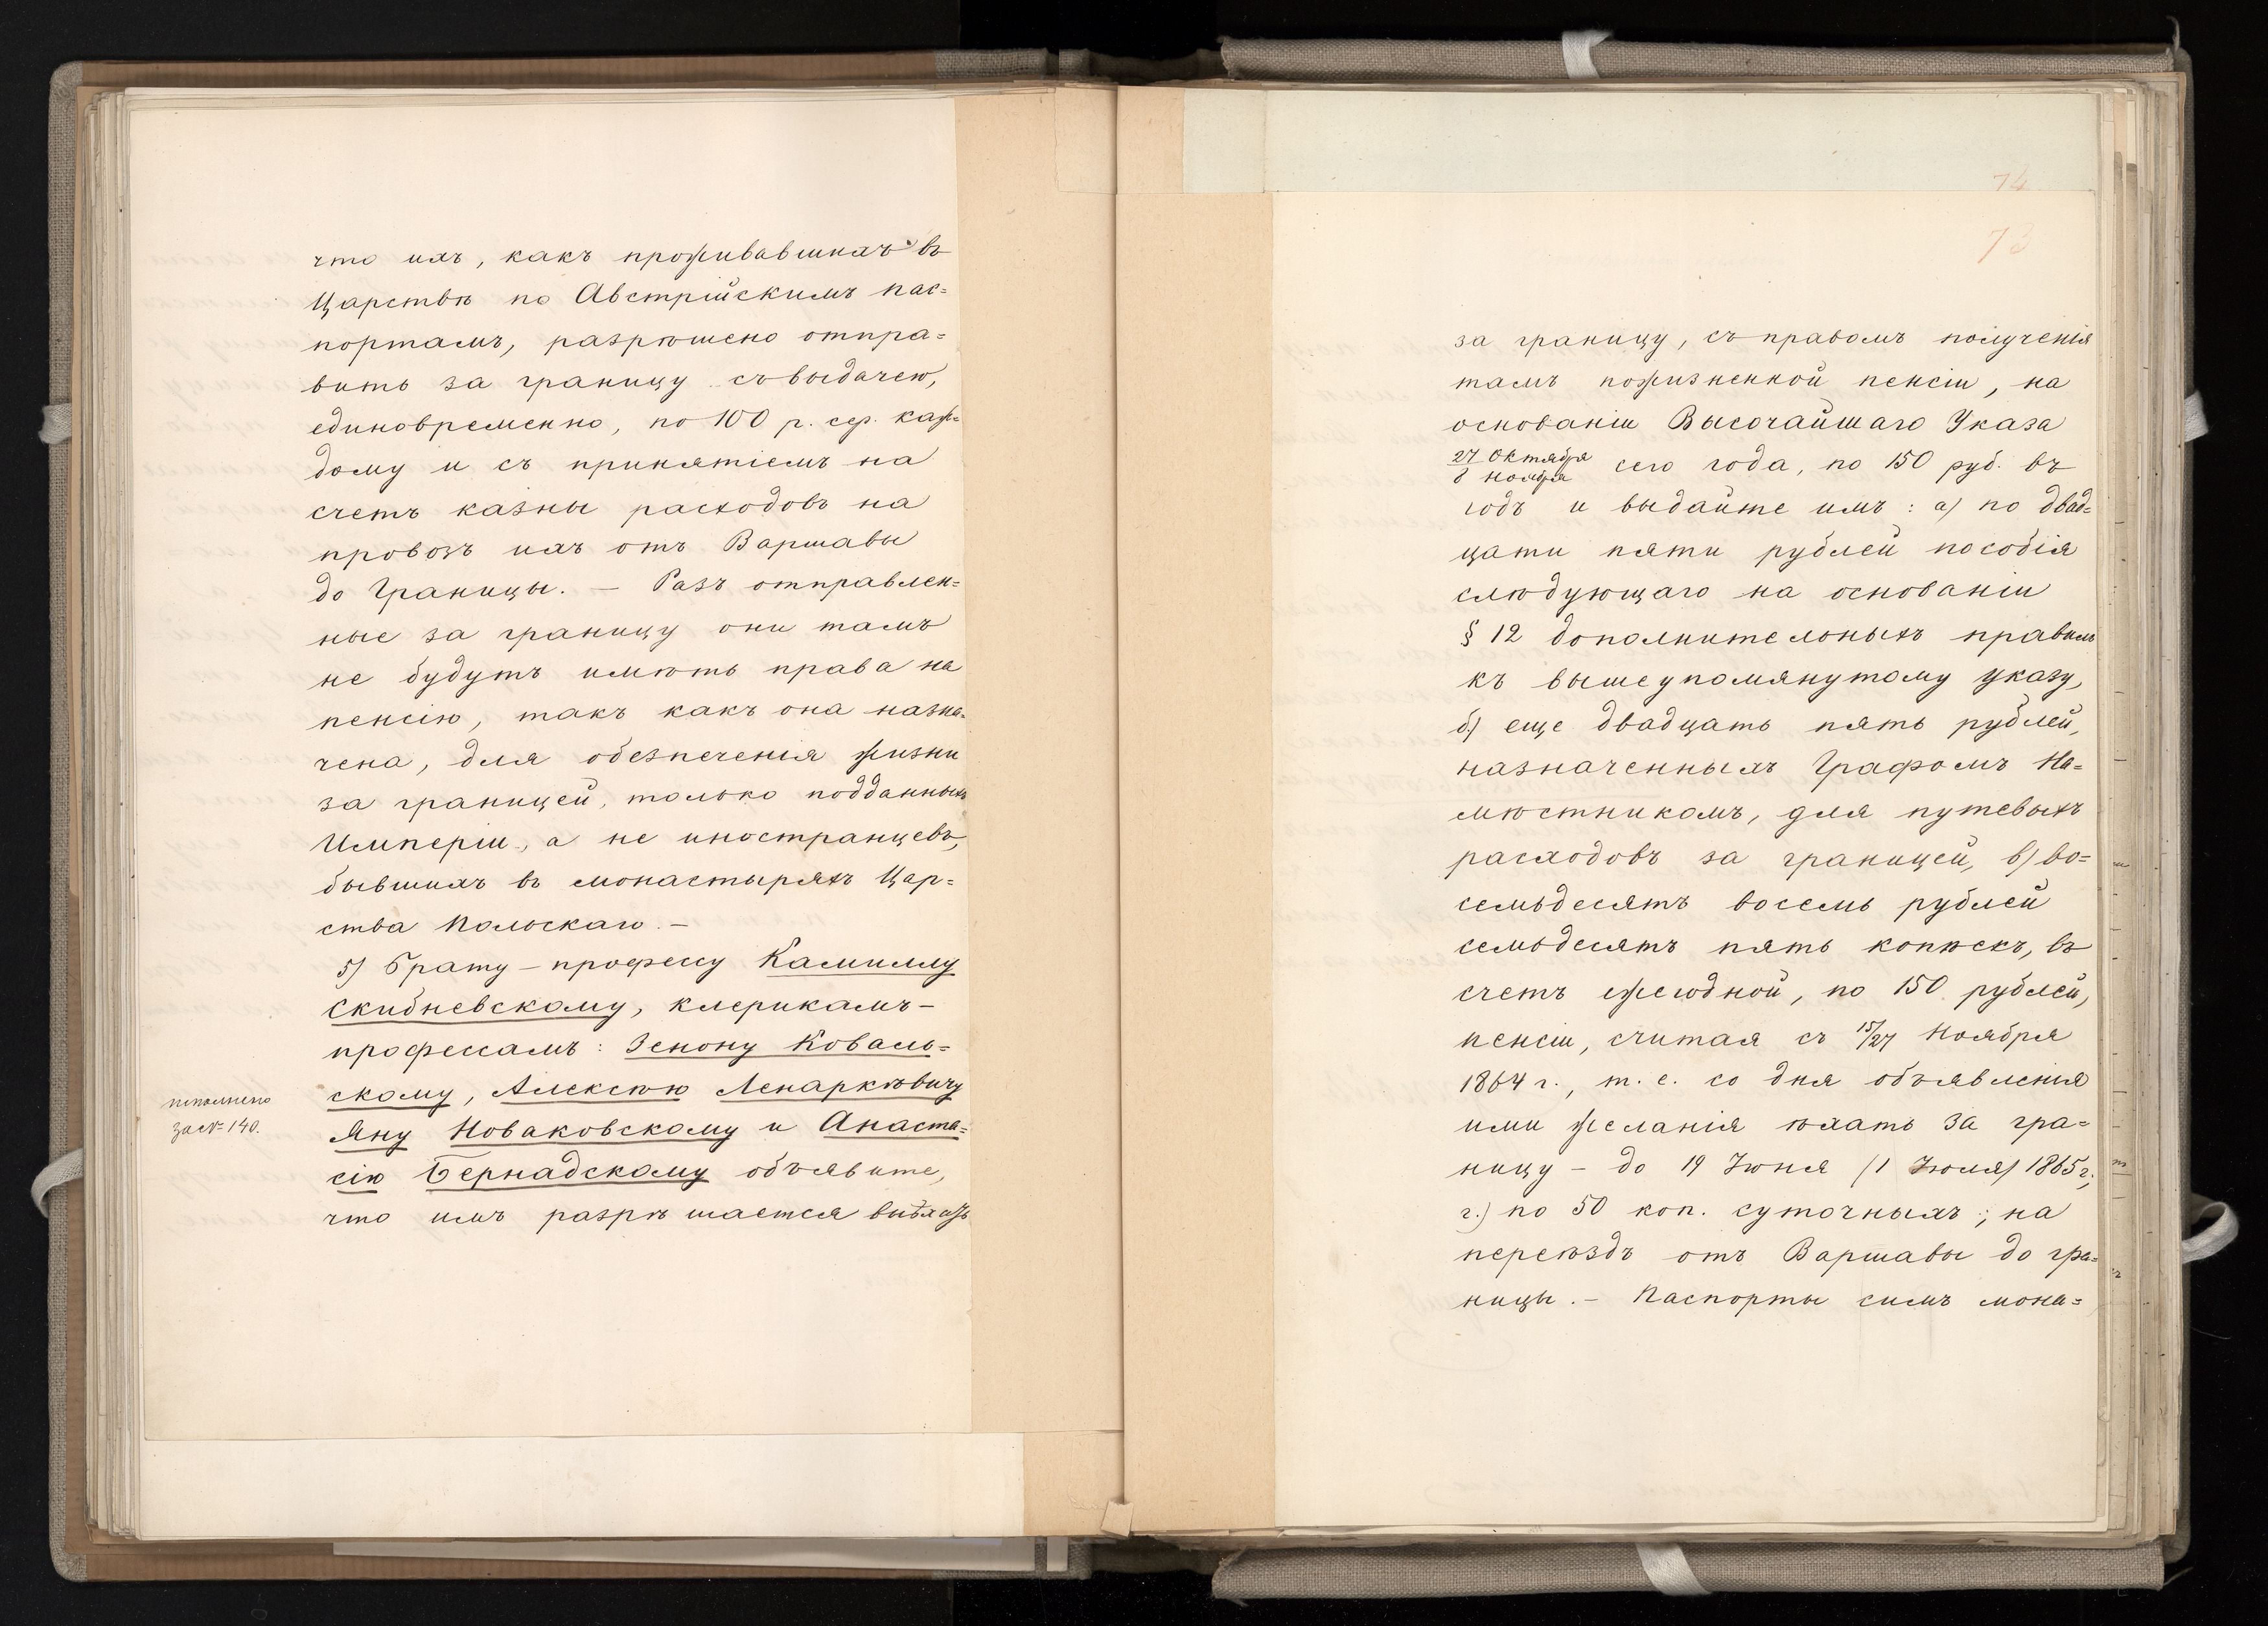 что ихъ, какъ проживавшихъ въ
Царствѣ по Австрійскимъ пас=
портамъ, разрѣшено отпра=
вить за границу съ выдачею,
единовременно, по 100 р. сер. каж=
дому и съ принятіемъ на
счетъ казны расходовъ на
провозъ ихъ отъ Варшавы
до Границы. — Разъ отправлен=
ные за границу они тамъ
не будутъ имѣть права на
пенсію, такъ какъ она назна=
чена, для обезпеченія жизни
за границей, только подданныхъ
Имперіи, а не иностранцевъ,
бывшихъ въ монастыряхъ Цар=
ства Польскаго. —
5) Брату — профессу Камиллу
Скибневскому, клерикамъ —
профессамъ: Зенону Коваль=
скому, Алексѣю Ленаркѣвичу
Яну Новаковскому и Анаста=
сію Бернадскому объявите,
что имъ разрѣшается выѣхать
исполнено
за № 140.
74
73
за границу, съ правомъ полученія
тамъ пожизненной пенсіи, на
основаніи Высочайшаго Указа
27 Октября / 8 Ноября сего года, по 150 руб. въ
годъ и выдайте имъ: а) по двад=
цати пяти рублей пособія
слѣдующаго на основаніи
§ 12 дополнительныхъ правилъ
къ вышеупомянутому указу,
б) еще двадцать пять рублей,
назначенныхъ Графомъ На=
мѣстникомъ, для путевыхъ
расходовъ за границей, в) во=
семьдесятъ восемь рублей
семьдесятъ пять копѣекъ, въ
счетъ ежегодной, по 150 рублей,
пенсіи, считая съ 15/27 Ноября
1864 г., т. е. со дня объявленія
ими желанія ѣхать за гра=
ницу — до 19 Іюня /1 Іюля/ 1865 г.;
г.) по 50 коп. суточныхъ; на
переѣздъ отъ Варшавы до гра=
ницы. — Паспорты симъ мона=